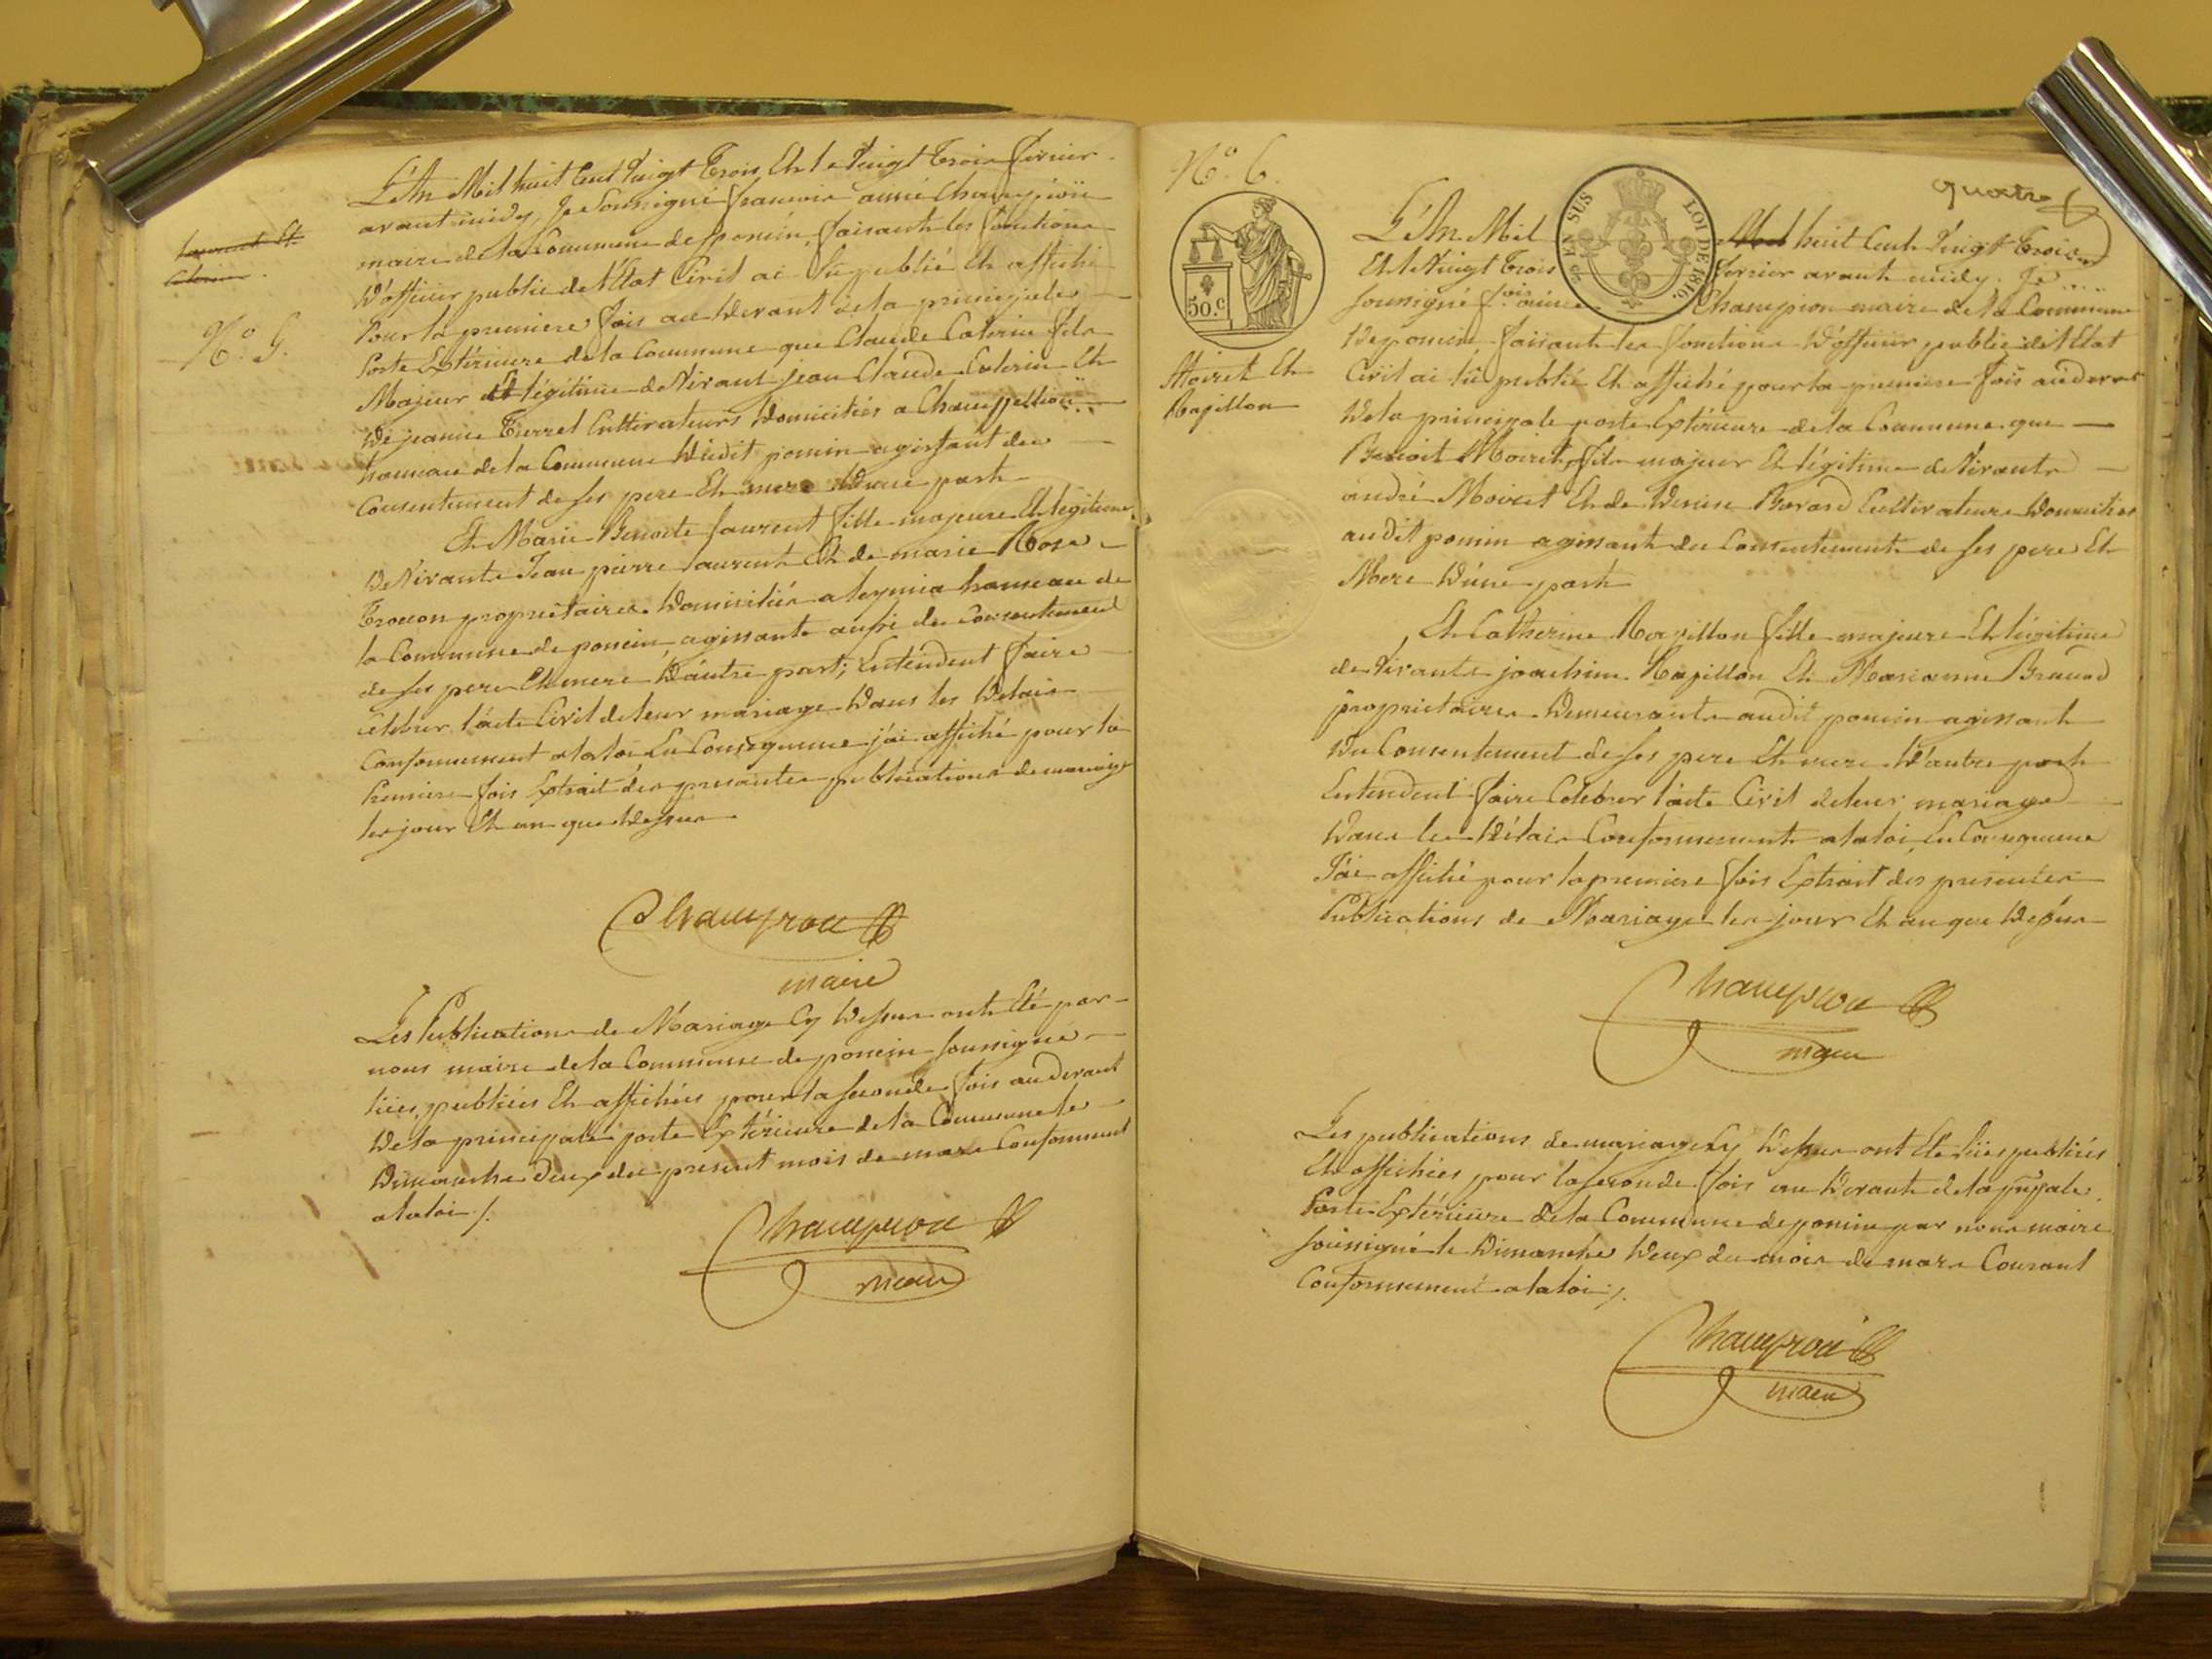 L'An Mil huit Cent Vingt Trois Et le Vingt Trois fevrier
avant midy, Je Soussigné francois aimé Champion
maire de la Commune de poncin, faisant les fonctions
D'officier public de l'Etat Civil ai lu publié Et affiché
Pour la premiere fois au devant de la principale
Porte Extérieure de la Commune que Claude Coterin fils
Majeur Et légitime de Vivant jean Claude Coterin Et
De jeanne Cultivateurs Domiciliés a Champeillon
hameau de la Commune Dudit poncin agissant du
Consentement de ses pere Et mere D'une part
Et Marie Benoite Laurent fille majeure Et légitime
De Vivants Jean pierre Laurent Et de marie Rose
propriétaires Domiciliés a leymia hameau de
la Commune de poncin, agissante aussi du Consentement
de ses pere Et mere D'autre part; Entendent faire
célébrer l'acte Civil de leur mariage Dans les Delais
Conformement a la loi En Consequence j'ai affiché pour la
Premiere fois Extrait des presentes publications de mariage
les jour Et an que Dessus
Laurent Et
Coterin
N.° 5.
Champion
maire
Les Publications de Mariage Cy Dessus ont Eté par
nous maire de la Commune de poncin soussigné
lües, publiées Et affichées pour la seconde fois au devant
De la principale porte Extérieure de la Commune le
Dimanche deux du present mois de mars Conformement
a la loi ./.
Champion
maire
N.° 6.
quatre
50.c
25 EN SUS
LOI DE 1816.
Moiret Et
Rapillon
L'An Mil Mil huit Cent Vingt Trois
Et le Vingt Trois fevrier avant midy. Je
soussigné f.ois aimé Champion maire de la Commune
De poncin faisant les fonctions D'officier public de l'Etat
Civil ai lû publié Et affiché pour la premiere fois au devant
De la principale porte Extérieure de la Commune que
Benoit Moiret, fils majeur Et légitime de Vivants
andré Moiret Et de Denise Bérard Cultivateurs Domiciliés
audit poncin agissant du Consentement de ses pere Et
Mere D'une part
Et Catherine Rapillon fille majeure Et légitime
de Vivants joachim Rapillon Et Marianne
propriétaires Demeurants audit poncin agissant
Du Consentement de ses pere Et mere D'autre part
Entendent faire Celebrer l'acte Civil de leur mariage
Dans les Délais Conformement a la loi, En Consequence
J'ai affiché pour la premiere fois Extrait des presentes
Publications de Mariage les jour Et an que Dessus
Champion
maire
Les publications de mariage Cy Dessus ont Eté lües publiées
Et affichées pour la seconde fois au Devant de la pñpale
Porte Extérieure de la Commune de poncin par nous maire
soussigné le Dimanche Deux du mois de mars Courant
Conformement a la loi ./.
Champion
maire